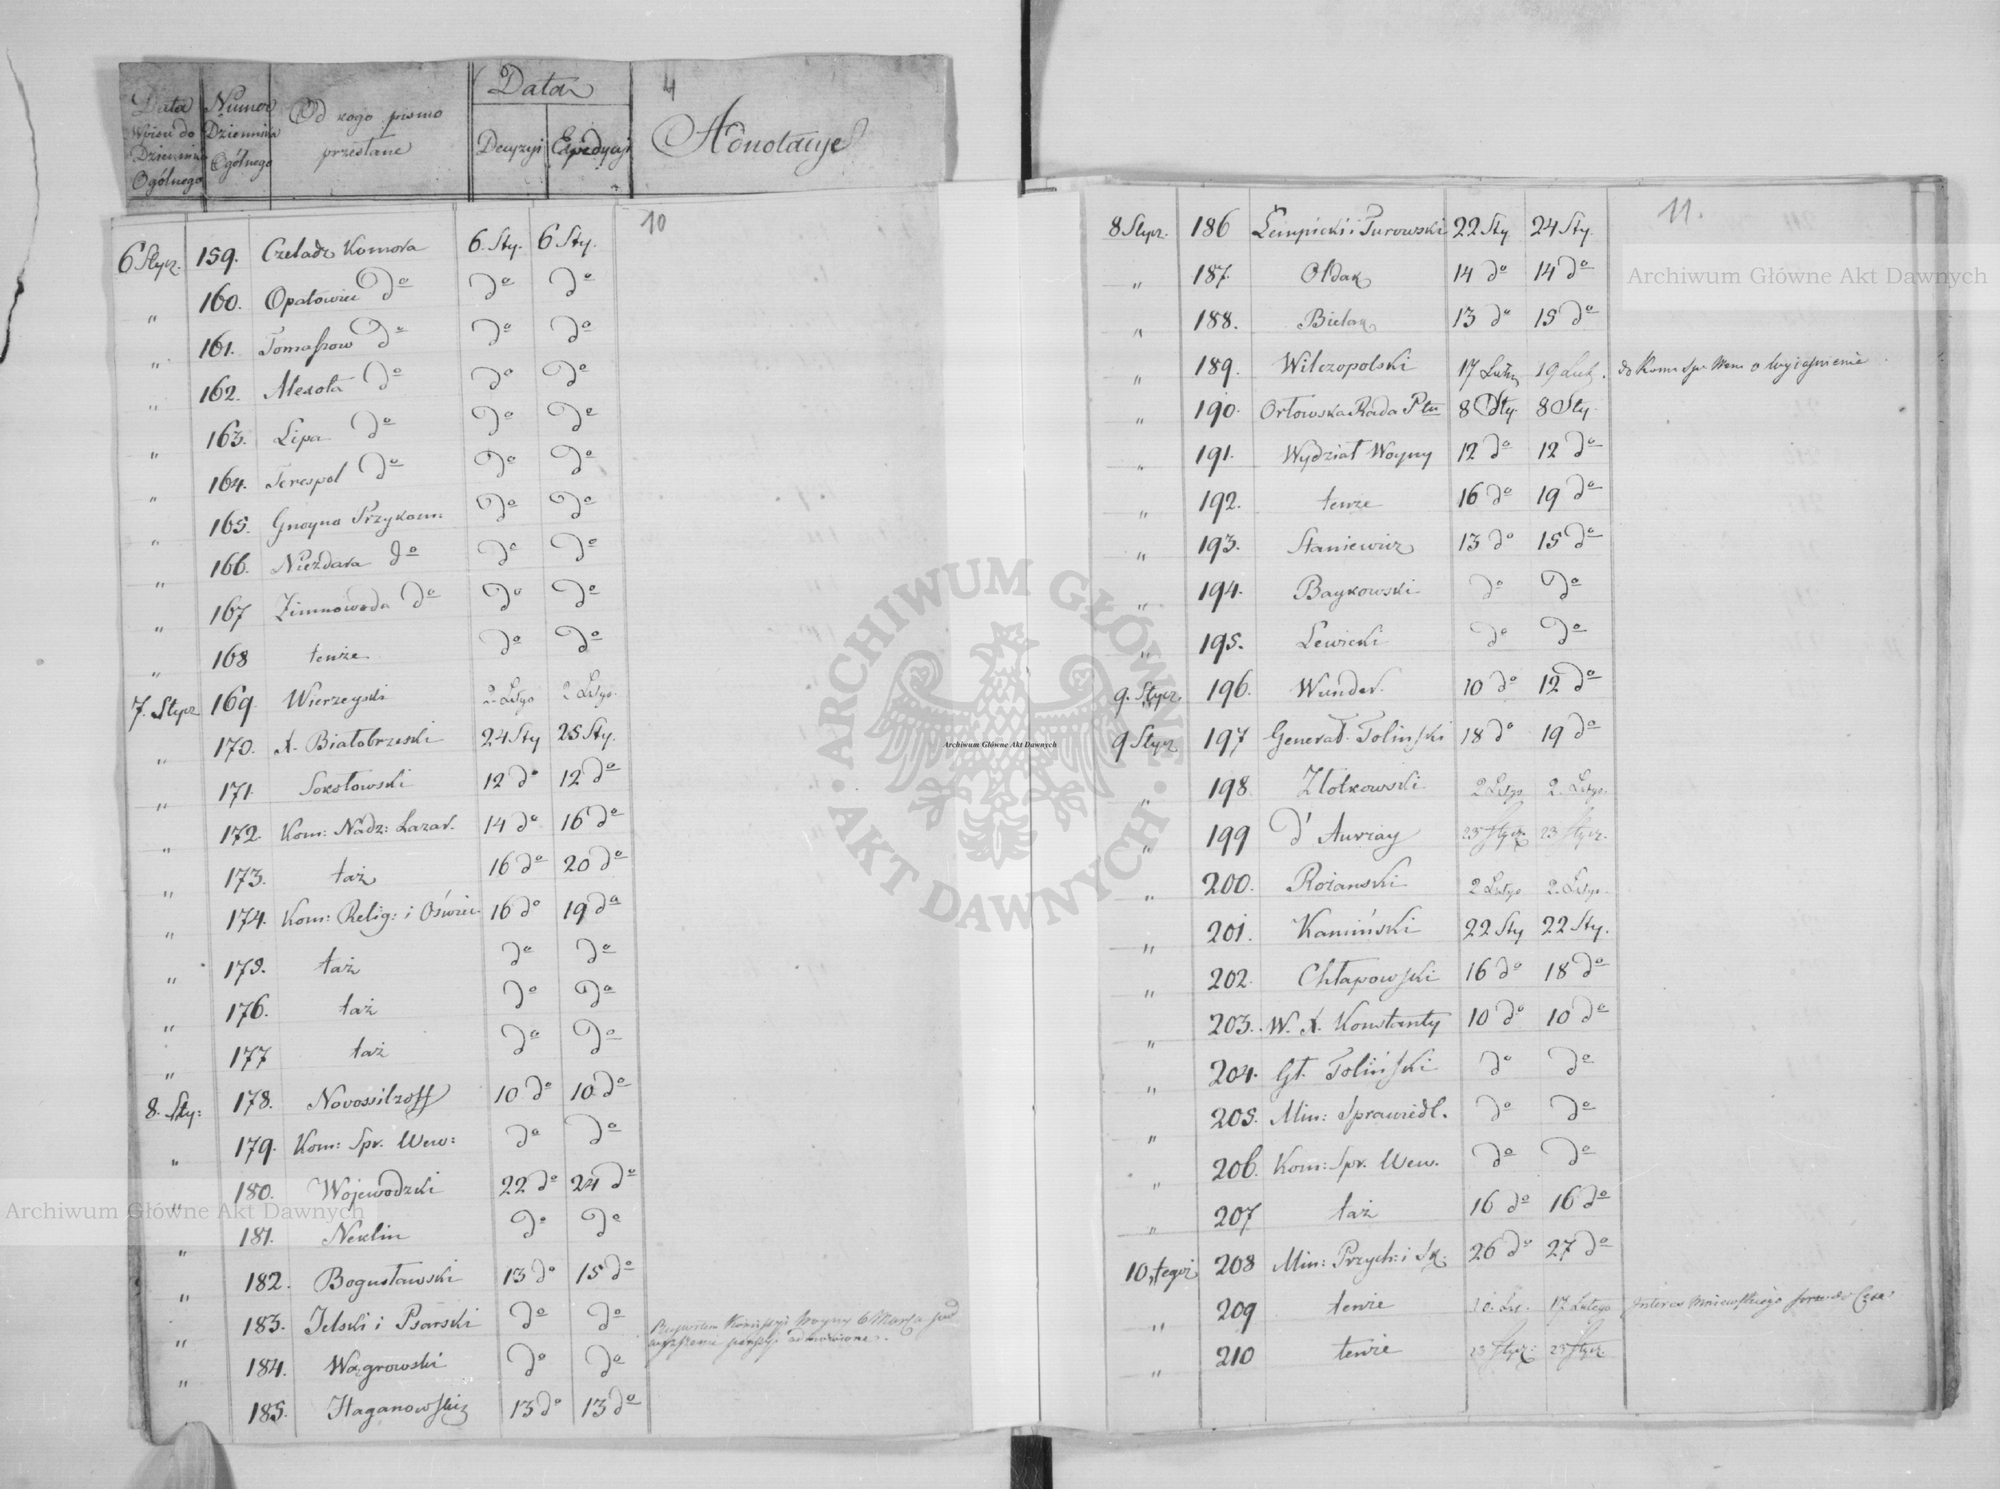 Data Wpisu do Dziennika Ogólnego | Numer Dziennika Ogólnego | Od kogo pismo przesłane | Data Decyzyi | Expedycyi | Adnotacye
4
10
6 Stycz. 159. Czeladz Komora 6. Sty. 6 Sty.
" 160. Opatowiec do do do
" 161. Tomaszow do do do
" 162. Mexota do do do
" 163. Lipa do do do
" 164. Terespol do do do
" 165. Gnoyno Przykom: do do
" 166. Niezdara do do do
" 167 Zimnowoda do do do
" 168 tenże do do
7. Stycz 169 Wierzeyski 2 Lutgo 2 Lutgo.
" 170. X. Białobrzeski 24 Sty 25 Sty.
" 171. Sokołowski 12 do 12 do
" 172 Kom: Nadz: Lazar. 14 do 16 do
" 173. taż 16 do 20 do
" 174. Kom: Relig: i Oświe. 16 do 19 do
" 175. taż do do
" 176. taż do do
" 177 taż do do
8. Sty: 178. Novossilzoff 10 do 10 do
" 179. Kom: Spr. Wew: do do
" 180. Wojewodzki 22 do 24 do
" 181. Neklin do do
" 182. Bogusławski 13 do 15 do
" 183. Jelski i Psarski do do
" 184. Wągrowski do do
" 185. Haganowski 13 do 13 do
11.
8 Stycz. 186 Łempicki i Turowski 22 Sty 24 Sty.
" 187. Ołdak 14 do 14 do
" 188. Bielak 13 do 15 do
" 189. Wilczopolski 17 Lutg 19 Lutg. do Kom Spr Wew o wyiaśnienie
" 190. Orłowska Rada Ptu 8 Sty. 8 Sty.
" 191. Wydział Woyny 12 do 12 do
" 192. tenże 16 do 19 do
" 193. Staniewicz 13 do 15 do
" 194. Baykowski do do
" 195. Lewicki do do
9. Stycz. 196. Wunder. 10 do 12 do
9 Stycz 197 Generał. Toliński 18 do 19 do
" 198 Złotkowski 2 Lutgo 2. Lutgo.
" 199 d' Auvray 23 Stycz. 23 Stycz.
" 200. Rożanski 2 Lutgo 2. Lutgo.
" 201. Kamiński 22 Sty 22 Sty.
" 202. Chłapowski 16 do 18 do
" 203. W. X. Konstanty 10 do 10 do
" 204. Gł. Toliński do do
" 205. Min: Sprawiedl. do do
" 206. Kom: Spr. Wew. do do
" 207 taż 16 do 16 do
10 tegoż 208 Min: Przych: i Sk: 26 do 27 do
" 209 tenże 17 Lutego
" 210 tenże 23 Stycz: 23 Stycz
Archiwum Główne Akt Dawnych
Archiwum Główne Akt Dawnych
Archiwum Główne Akt Dawnych
· ARCHIWUM GŁÓWNE · AKT DAWNYCH ·